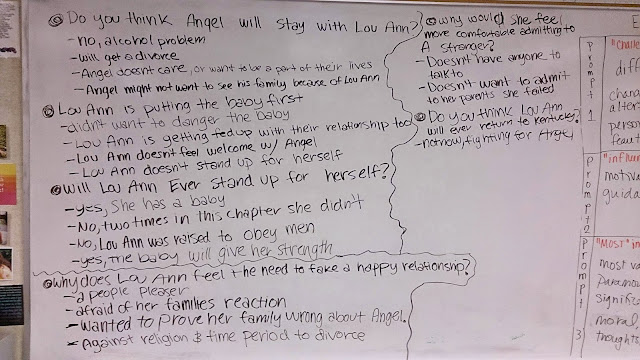 Do you think Angel will stay with Lou Ann?
- no, alcohol problem
- will get a divorce
- Angel doesn't care, or want to be a part of their lives
- Angel might not want to see his family because of Lou Ann
Lou Ann is putting the baby first
- didn't want to danger the baby
- Lou Ann is getting fed up with their relationship too
- Lou Ann doesn't feel welcome w/ Angel
- Lou Ann doesn't stand up for herself
Will Lou Ann Ever stand up for herself?
- yes, She has a baby
- No, two times in this chapter she didn't
- No, Lou Ann was raised to obey men
- yes, The baby will give her strength
Why does Lou Ann feel the need to fake a happy relationship?
- a people pleaser
- afraid of her families reaction
- Wanted to prove her family wrong about Angel.
- Against religion & time period to divorce
why would she feel
more comfortable admitting to
A stranger?
- Doesn't have anyone to
talk to
- Doesn't want to admit
to her parents she failed
Do you think Lou Ann
will ever return to Kentucky?
- not now, fighting for
E
Prompt 1
"Challe
diff
chara
altern
person
featu
Prompt 2
"influen
motiva
guida
Prompt 3
"Most" in
most va
Paramou
signific
moral
thoughts